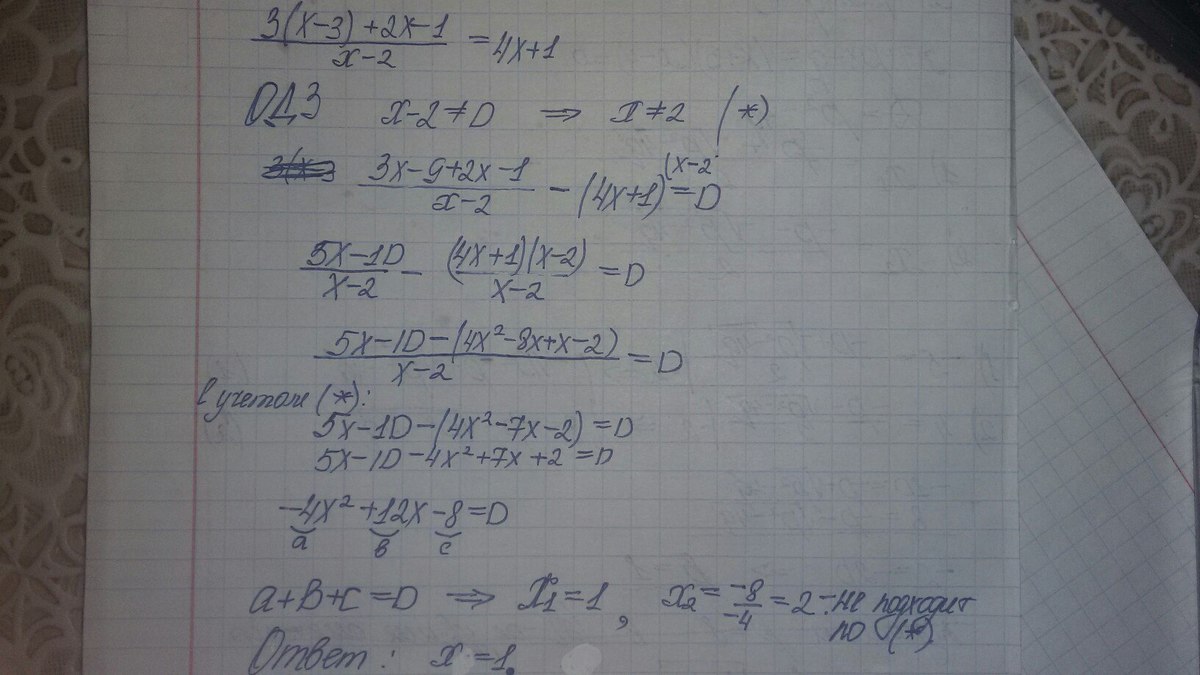 3(x-3)+2x-1 / x-2 = 4x+1
ОДЗ x-2≠0 ⇒ x≠2 (*)
3x-9+2x-1 / x-2 - (4x+1)(x-2 = 0
5x-10 / x-2 - (4x+1)(x-2) / x-2 = 0
5x-10-(4x²-8x+x-2) / x-2 = 0
с учетом (*):
5x-10-(4x²-7x-2)=0
5x-10-4x²+7x+2=0
-4x²+12x-8=0
a в c
a+в+c=0 ⇒ x₁=1, x₂= -8 / -4 =2 - не подходит
по (*)
Ответ: x=1.